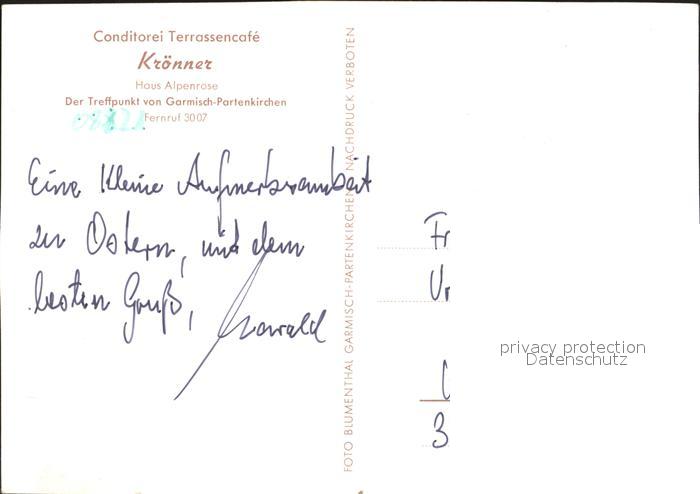 Conditorei Terrassencafé
Krönner
Haus Alpenrose
Der Treffpunkt von Garmisch-Partenkirchen
Fernruf 3007
Eine kleine Aufmerksamkeit
zu Ostern, mit dem
besten Gruß,
FOTO BLUMENTHAL GARMISCH-PARTENKIRCHEN NACHDRUCK VERBOTEN
Fr
3
privacy protection
Datenschutz